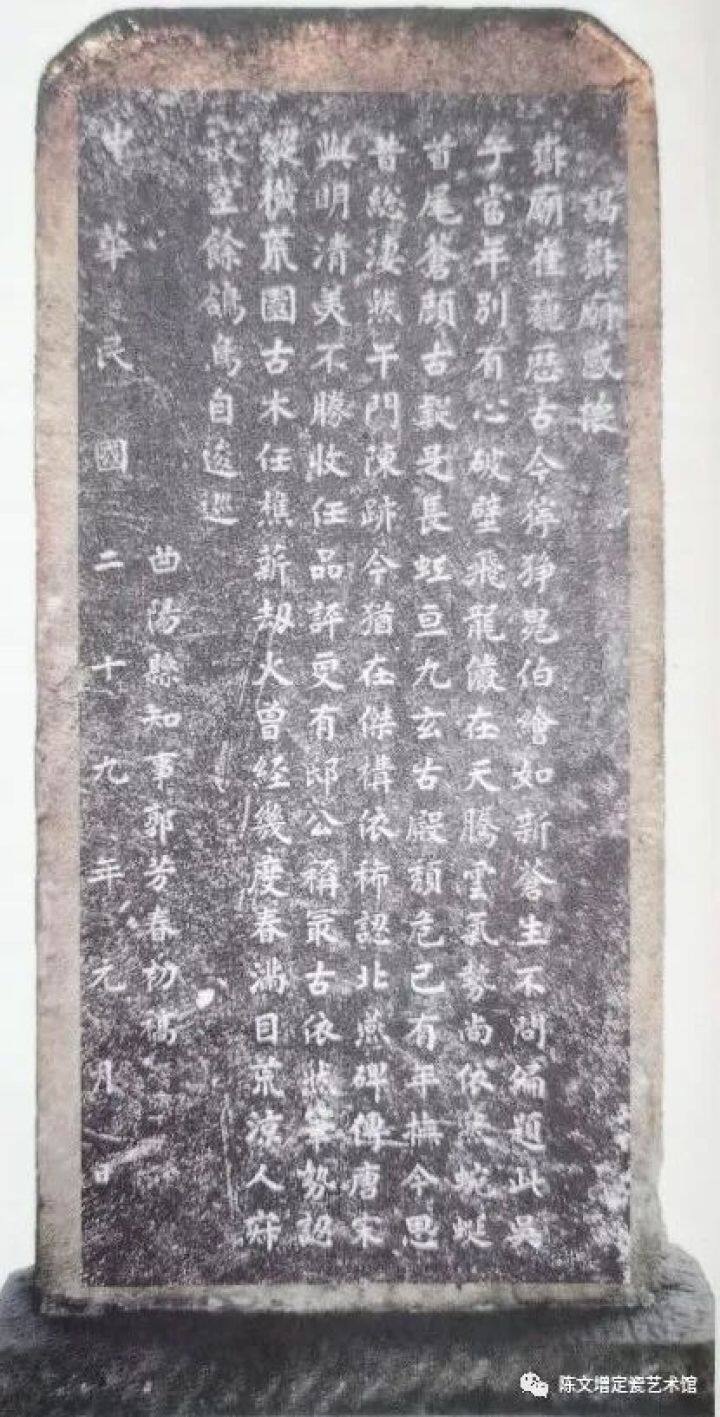 謁嶽廟感懷
嶽廟崔巍歷古今獰猙鬼伯繪如新蒼生不問偏題此吳
子當年別有心破壁飛龍儼在天騰雲氣勢尚依然蛇蜓
首尾蒼顏古疑是長虹亘九玄古殿頹危已有年撫今思
昔総淒然午門陳跡今猶在傑構依稀認北燕碑傳唐宋
與明清美不勝收任品評更有邸公稱最古依然筆勢認
縱橫荒園古木任樵薪劫火曾經幾度春滿目荒涼人寂
寂空餘鴿鳥自逡巡
曲陽縣知事郭芳春初稿
中華民國二十九年元月日
陈文增定瓷艺术馆